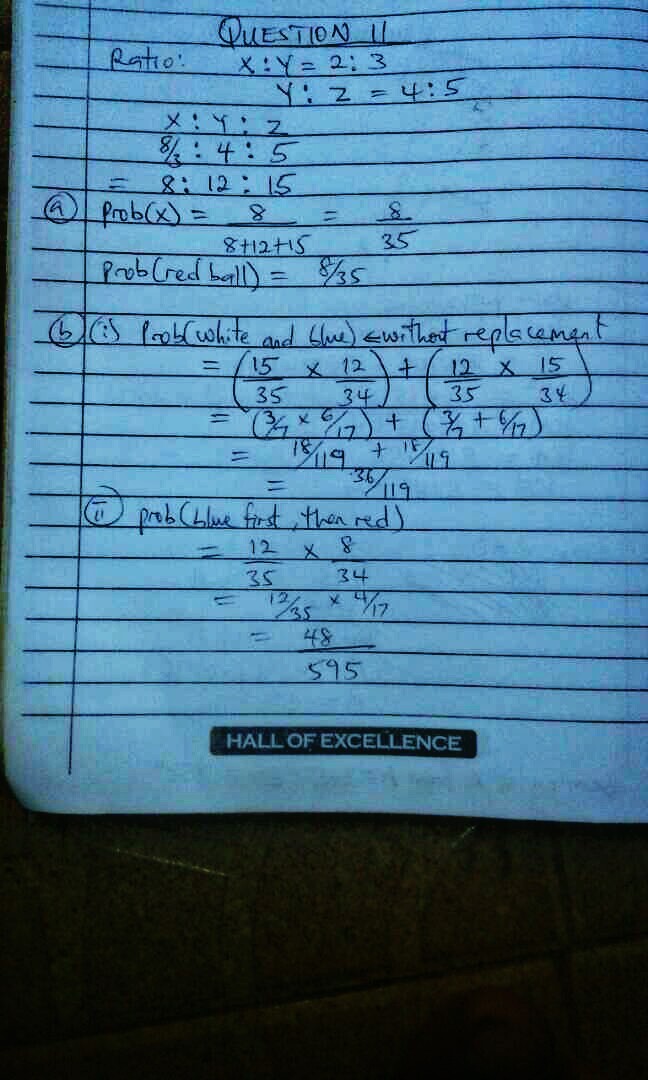 QUESTION 11
Ratio: X : Y = 2 : 3
Y : Z = 4 : 5
X : Y : Z
8/3 : 4 : 5
= 8 : 12 : 15
(a) Prob(x) = 8/(8+12+15) = 8/35
Prob(red ball) = 8/35
(b) (i) Prob(white and blue) ← without replacement
= (15/35 × 12/34) + (12/35 × 15/34)
= (3/7 × 6/17) + (3/7 + 6/17)
= 18/119 + 18/119
= 36/119
(ii) prob(blue first, then red)
= 12/35 × 8/34
= 12/35 × 4/17
= 48/595
HALL OF EXCELLENCE